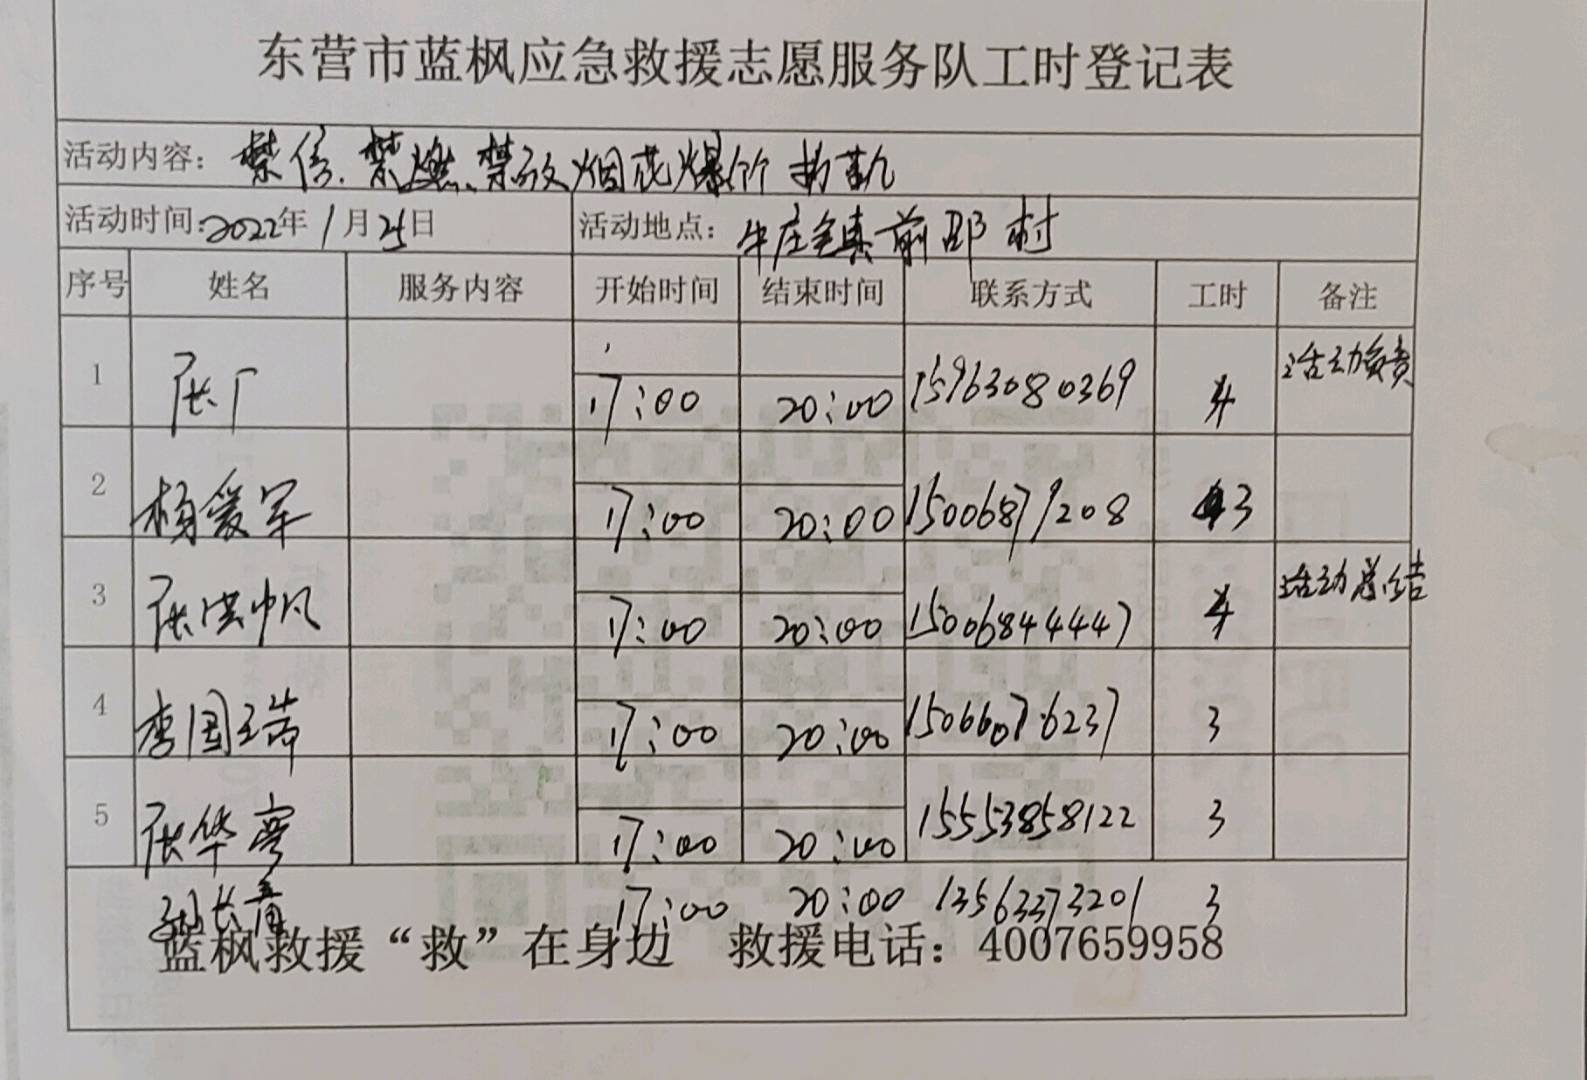 东营市蓝枫应急救援志愿服务队工时登记表
活动内容: 禁 禁燃、禁放烟花爆竹执勤
活动时间:2022年1月25日 活动地点: 牛庄镇前邵村
序号 姓名 服务内容 开始时间 结束时间 联系方式 工时 备注
1 张广 17:00 20:00 15963080369 4 活动负责
2 杨爱军 17:00 20:00 15006879208 3
3 张洪帆 17:00 20:00 15006844447 4 活动总结
4 李国瑞 17:00 20:00 15066076237 3
5 张华 17:00 20:00 15553858122 3
长青 17:00 20:00 13563373201 3
蓝枫救援“救”在身边 救援电话: 4007659958